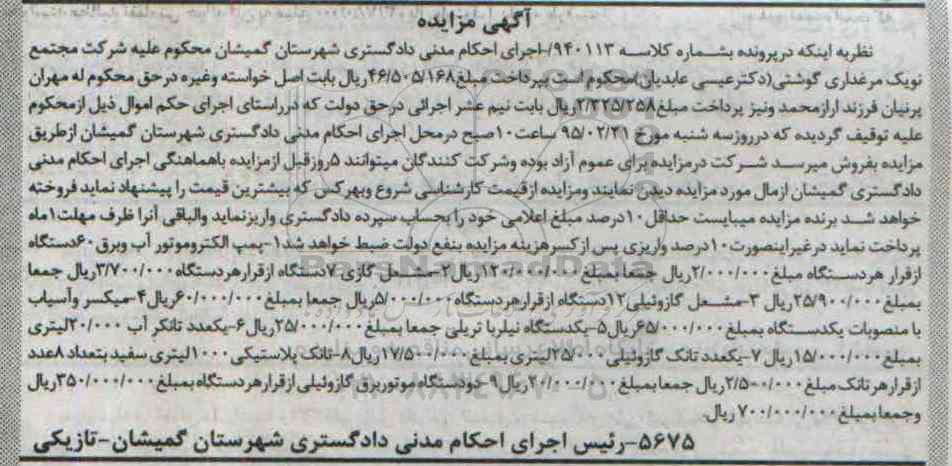 آگهی مزایده
نظربه اینکه درپرونده بشماره کلاسه ۹۴۰۱۱۳/-اجرای احکام مدنی دادگستری شهرستان گمیشان محکوم علیه شرکت مجتمع
نویک مرغداری گوشتی(دکترعیسی عابدیان)محکوم است بپرداخت مبلغ۴۶/۵۰۵/۱۶۸ریال بابت اصل خواسته وغیره درحق محکوم له مهران
پرنیان فرزند ارازمحمد ونیز پرداخت مبلغ۲/۳۲۵/۲۵۸ریال بابت نیم عشر اجرائی درحق دولت که درراستای اجرای حکم اموال ذیل ازمحکوم
علیه توقیف گردیده که درروزسه شنبه مورخ ۹۵/۰۲/۲۱ ساعت۱۰صبح درمحل اجرای احکام مدنی دادگستری شهرستان گمیشان ازطریق
مزایده بفروش میرسد شرکت درمزایده برای عموم آزاد بوده وشرکت کنندگان میتوانند ۵روزقبل ازمزایده باهماهنگی اجرای احکام مدنی
دادگستری گمیشان ازمال مورد مزایده دیدن نمایند ومزایده ازقیمت کارشناسی شروع وبهرکس که بیشترین قیمت را پیشنهاد نماید فروخته
خواهد شد برنده مزایده میبایست حداقل ۱۰درصد مبلغ اعلامی خود را بحساب سپرده دادگستری واریزنماید والباقی آنرا ظرف مهلت۱ماه
پرداخت نماید درغیراینصورت۱۰درصد واریزی پس ازکسرهزینه مزایده بنفع دولت ضبط خواهد شد۱-پمپ الکتروموتور آب وبرق۶۰دستگاه
ازقرار هردستگاه مبلغ۲/۰۰۰/۰۰۰ریال جمعا بمبلغ۱۲۰/۰۰۰/۰۰۰ریال۲-مشعل گازی ۷دستگاه ازقرارهردستگاه۳/۷۰۰/۰۰۰ریال جمعا
بمبلغ۲۵/۹۰۰/۰۰۰ریال ۳-مشعل گازوئیلی۱۲دستگاه ازقرارهردستگاه۵/۰۰۰/۰۰۰ریال جمعا بمبلغ۶۰/۰۰۰/۰۰۰ریال۴-میکسر وآسیاب
با منصوبات یکدستگاه بمبلغ۶۵/۰۰۰/۰۰۰ریال۵-یکدستگاه نیلربا تریلی جمعا بمبلغ۲۵/۰۰۰/۰۰۰ریال۶-یکعدد تانکر آب ۲۰/۰۰۰لیتری
بمبلغ۱۵/۰۰۰/۰۰۰ریال ۷-یکعدد تانک گازوئیلی۲۵/۰۰۰لیتری بمبلغ۱۷/۵۰۰/۰۰۰ریال۸-تانک پلاستیکی ۱۰۰۰لیتری سفید بتعداد ۸عدد
ازقرارهرتانک مبلغ۲/۵۰۰/۰۰۰ریال جمعابمبلغ۲۰/۰۰۰/۰۰۰ریال۹-دودستگاه موتوربرق گازوئیلی ازقرارهردستگاه بمبلغ۳۵۰/۰۰۰/۰۰۰ریال
وجمعابمبلغ۷۰۰/۰۰۰/۰۰۰ ریال.
۵۶۷۵-رئیس اجرای احکام مدنی دادگستری شهرستان گمیشان-تازیکی